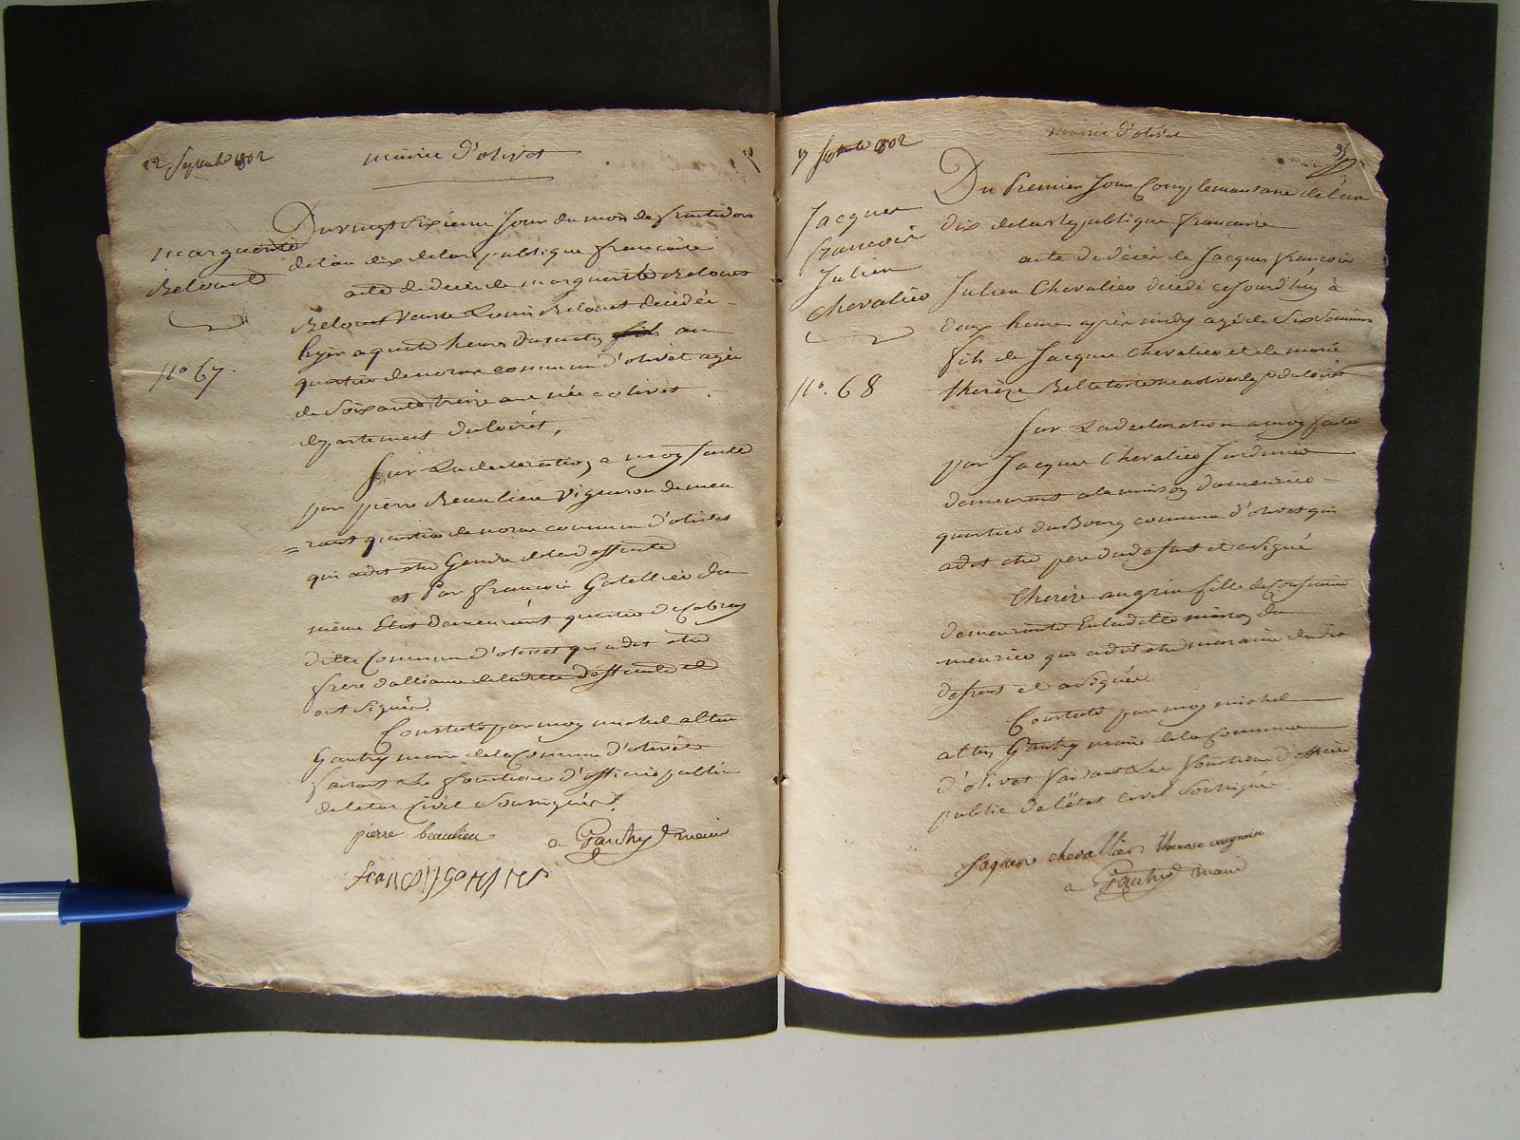 12 Septembre 1802
mairie d'olivet
marguerite
Belouet
N° 67.
Du vingt Sixieme Jour du mois de fructidor
de l'an dix de la republique francaise
acte de deces de marguerite Belouet
Belouet veuve Belouet decedée
hyer a quatre heures du matin au
quartier de commune d'olivet agée
de Soixante treize ans née a olivet
departement du loiret,
Sur La declaration a moy faitte
par pierre Beaulieu Vigneron demeu
= rant quartier de commune d'olivet
qui a dit etre Gendre de la deffunte
et Par francois Gatellier du
même Etat demeurant quartier
ditte Commune d'olivet qui a dit etre
frere d'alliance de laditte deffunte et
ont Signés.
Constaté par moy michel altin
Gautry maire de la Commune d'olivet
faisant Les fonctions d'officier public
de letat Civil Soussigné
pierre beaulieu
a Gautry maire
17 Septembre 1802
mairie d'olivet
Jacques
francois
Julien
Chevalier
N°. 68
Du Premier Jour Complementaire de l'an
dix de la republique francaise
acte de décés de Jacques francois
Julien Chevalier decedé cejourd'huy à
deux heures après midy agé de Six Semaines
fils de Jacques Chevalier et de marie
therèze
Sur La declaration a moy faitte
par Jacques Chevalier Jardinier
demeurant a la maison
quartier du Bourg commune d'olivet qui
a dit etre pere du defunt et a Signé
therèze augrin fille
demeurante En laditte maison du
qui a dit etre maraine dudit
defunt et a Signée
Constaté par moy michel
altin Gautry maire de la Commune
d'olivet faisant Les fonctions d'officier
public de l'état Civil Soussigné
Jaques chevallier therese augrin
a Gautry maire